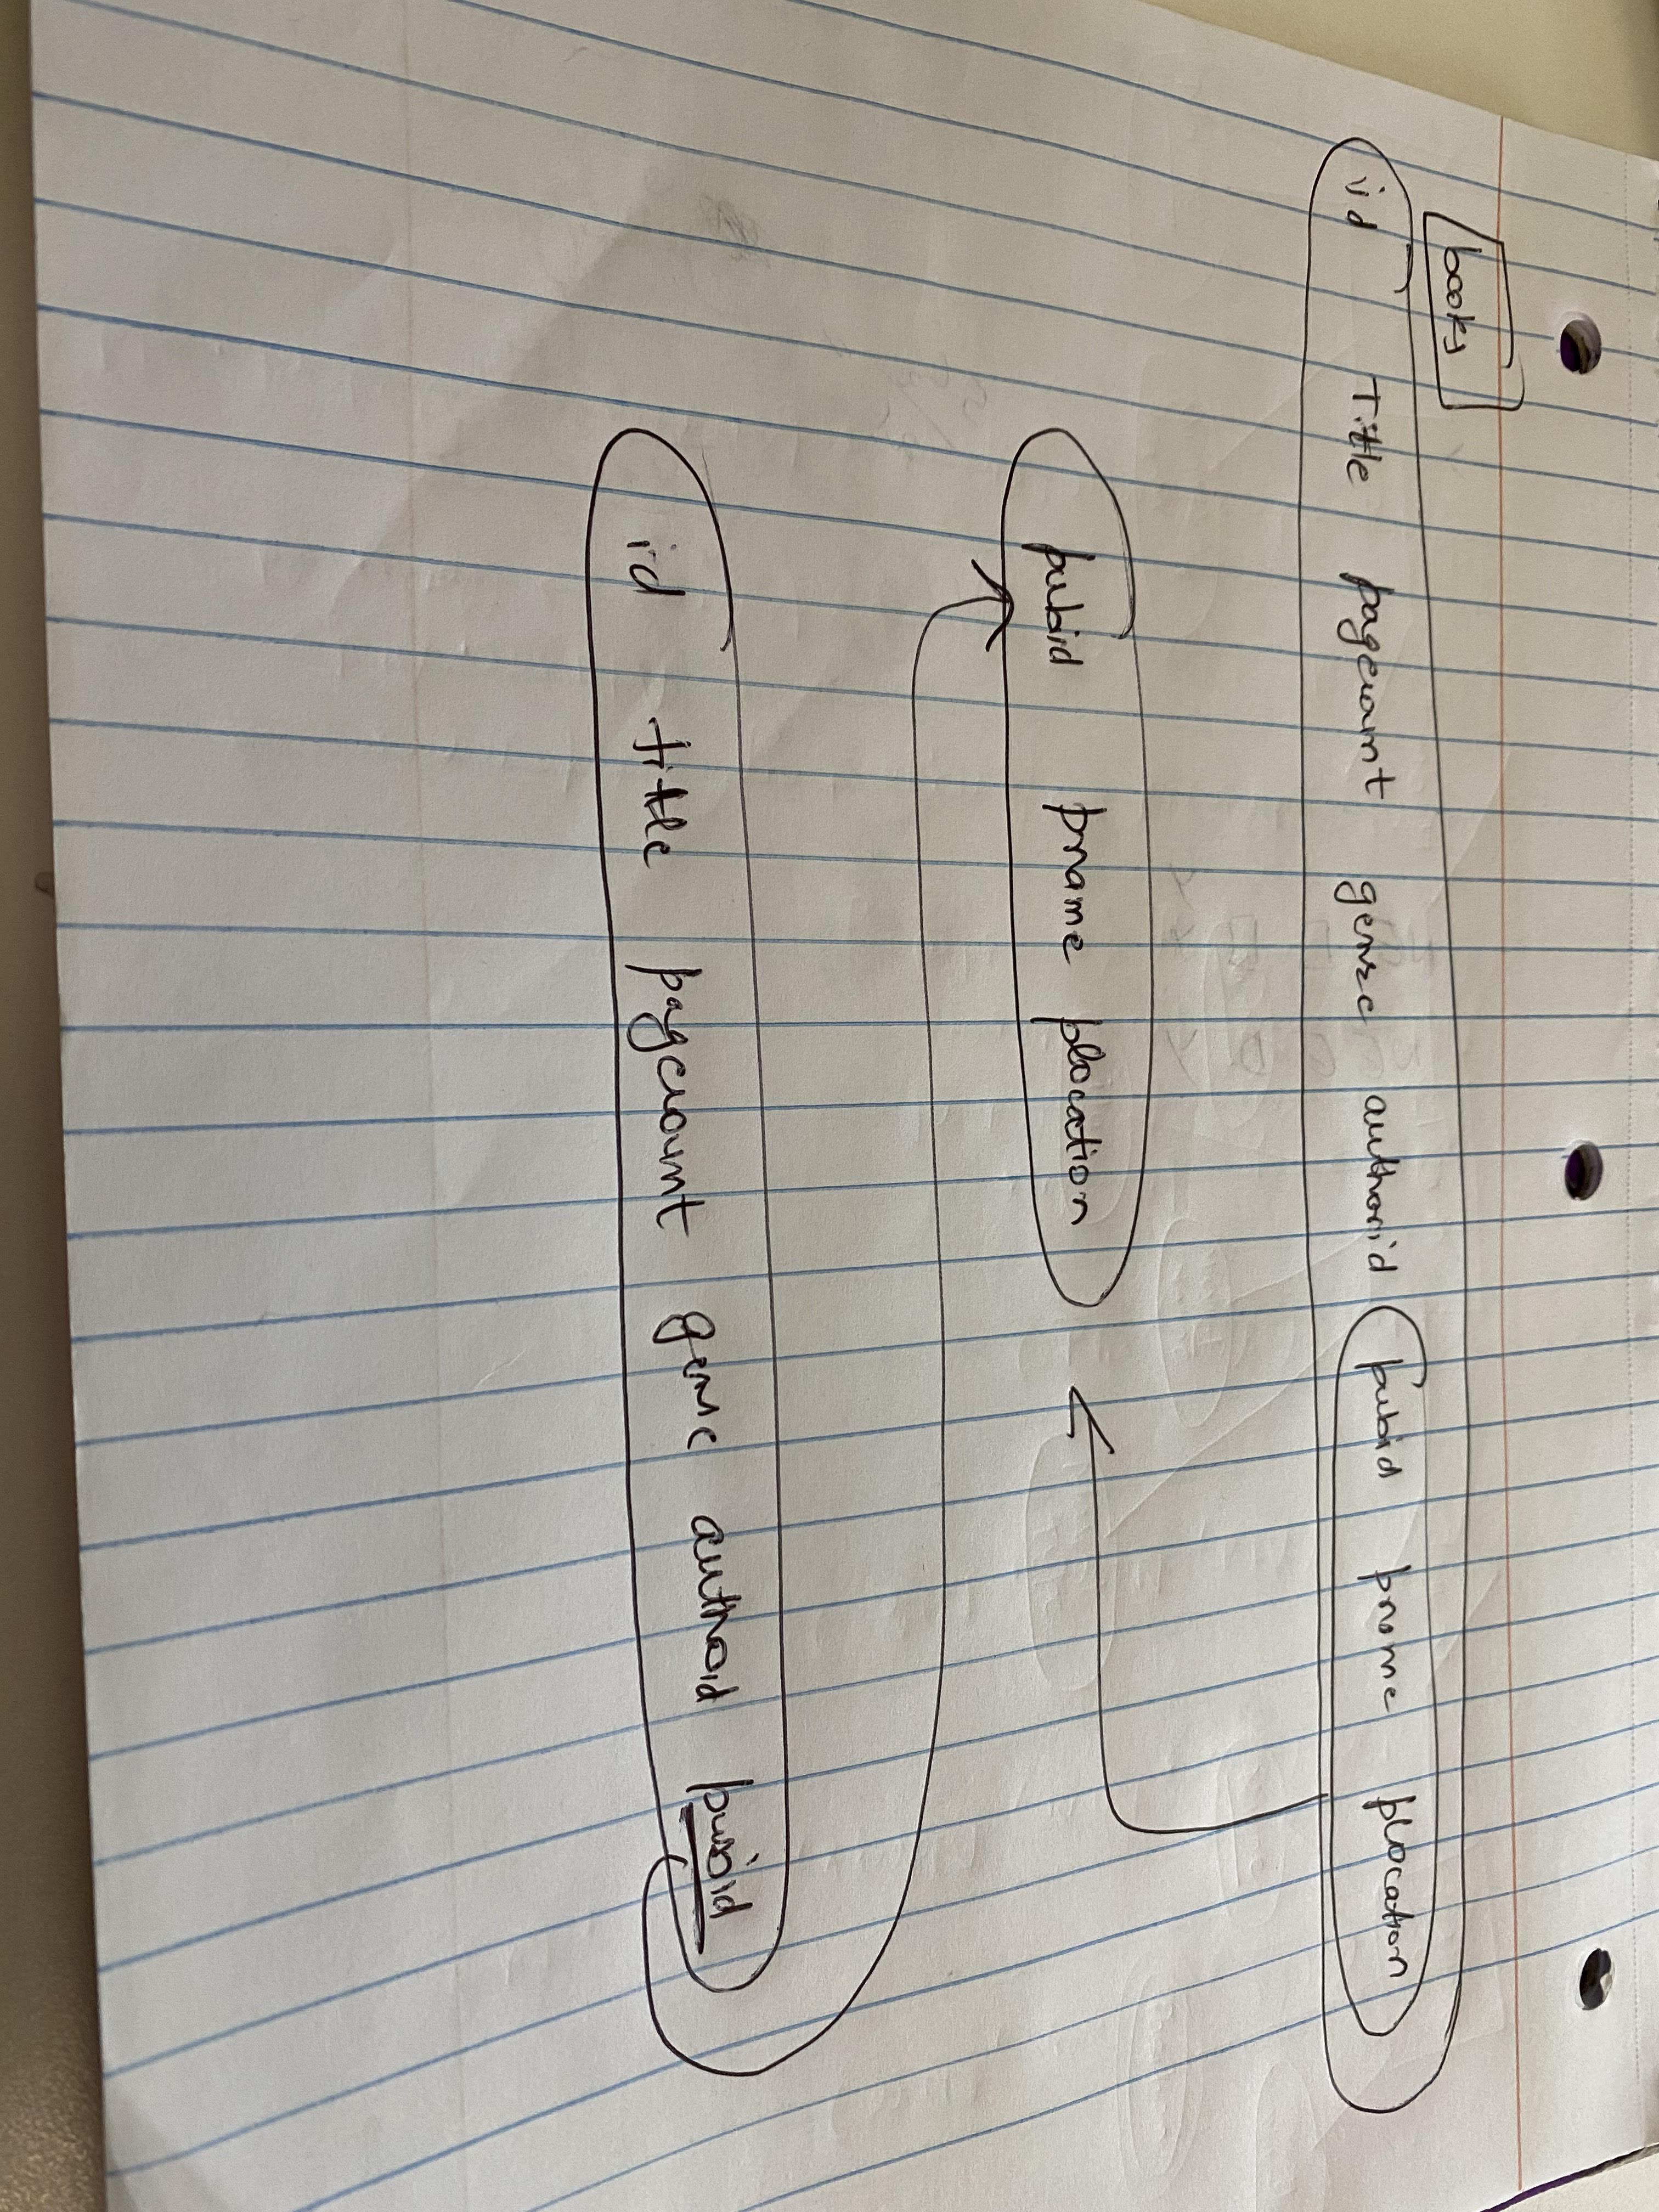 books
id Title pagecount genre authorid pubid pname plocation
pubid pname plocation
id title pagecount genre authoid pubid